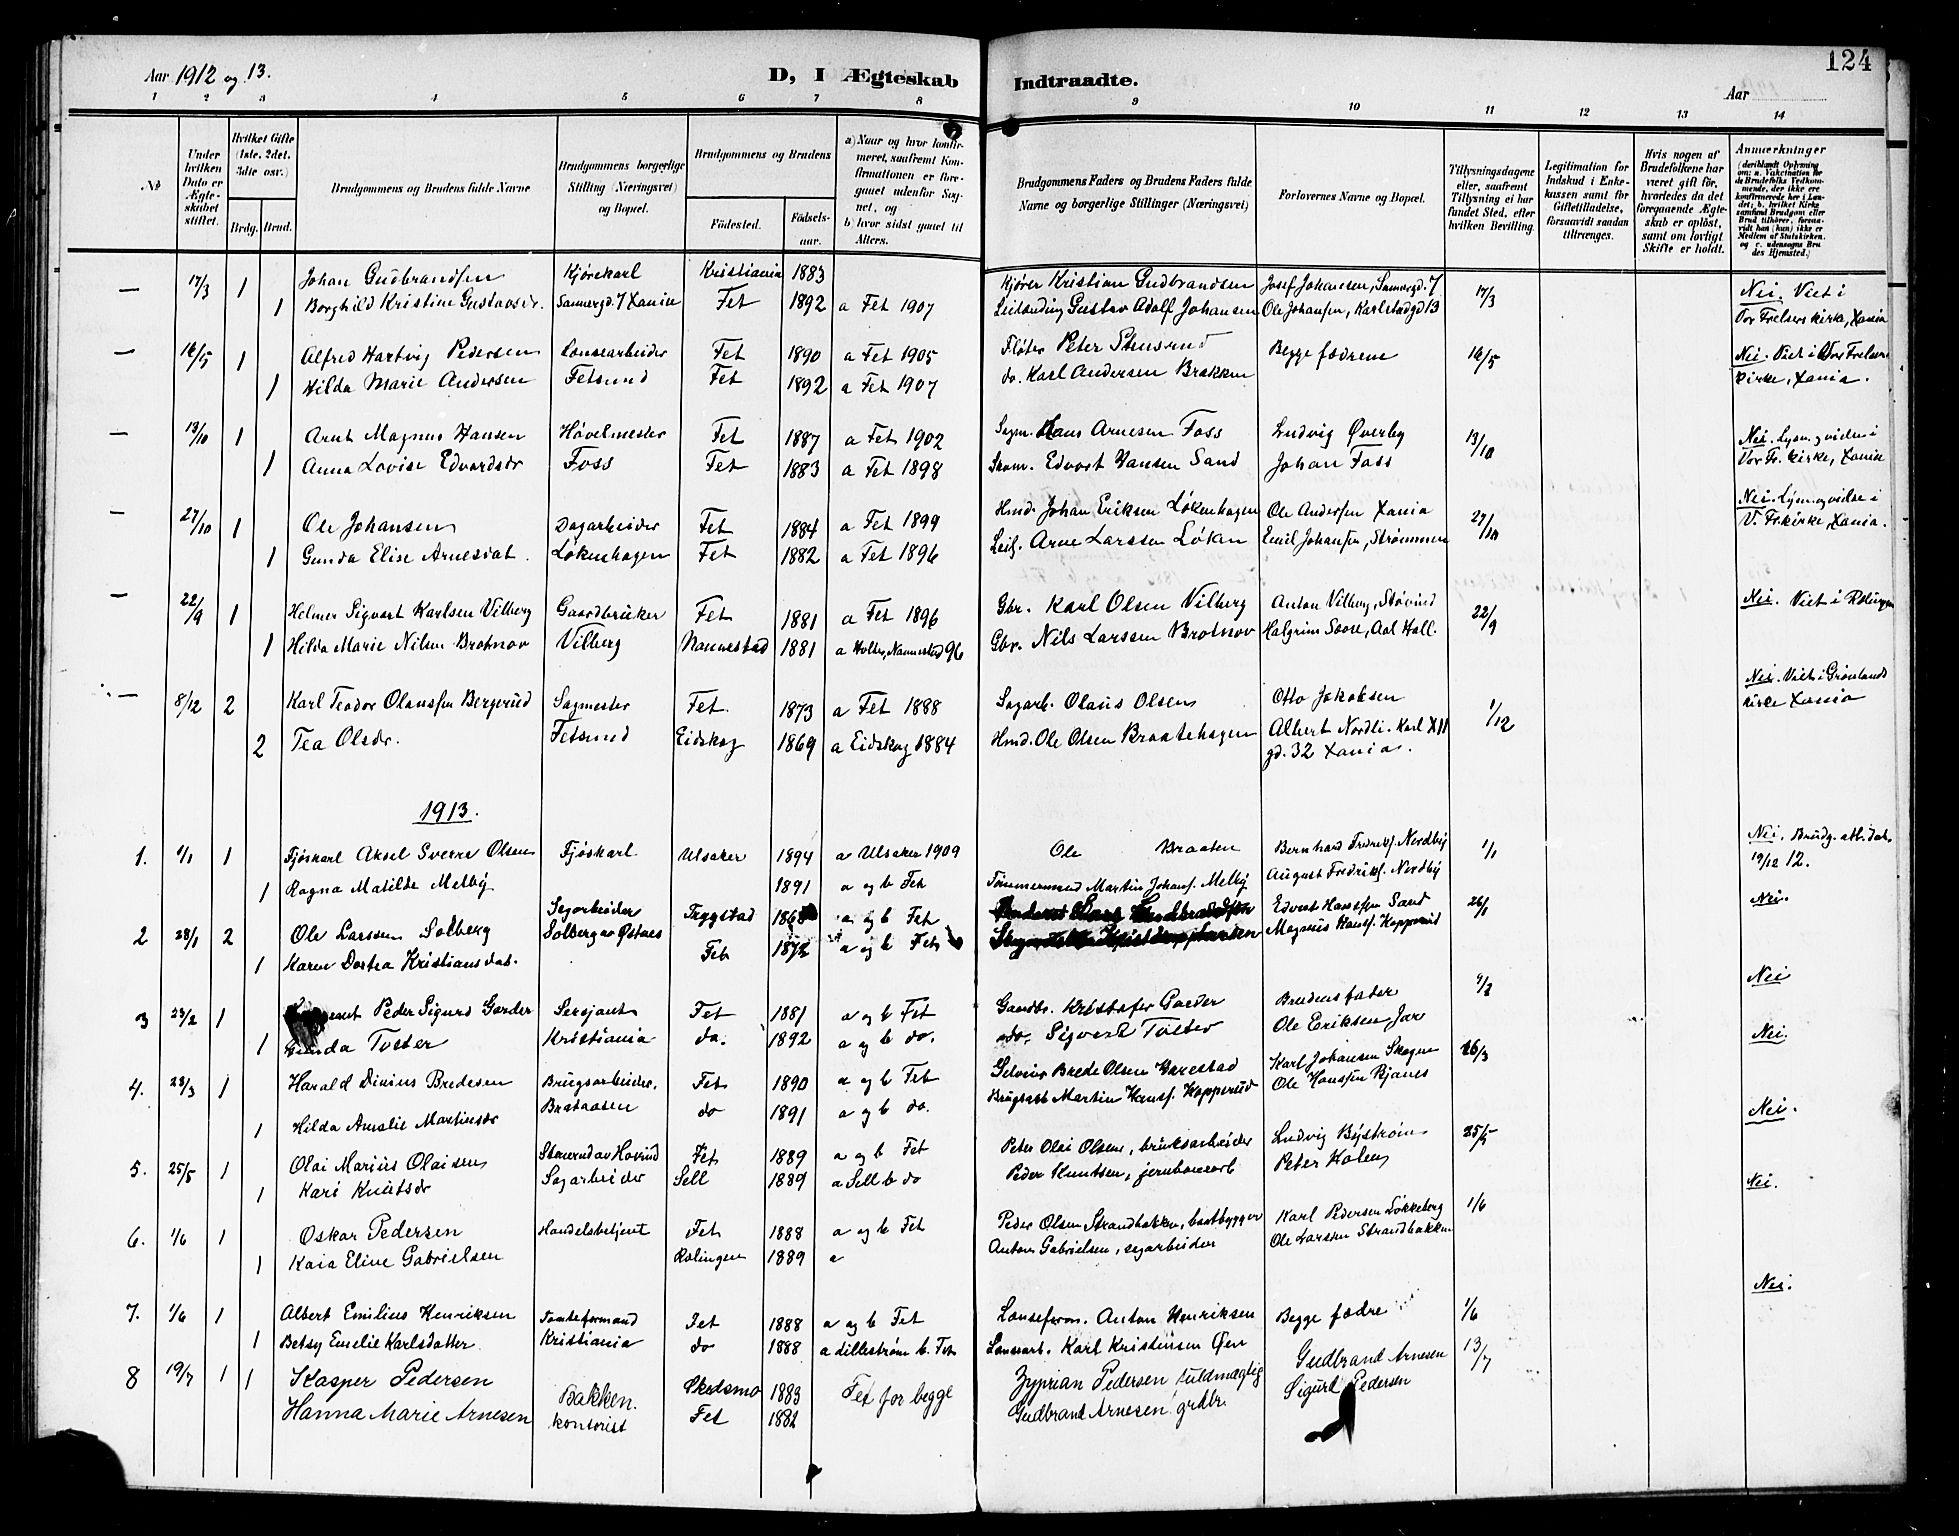 124
Aar 1912 og 13.
D, I Ægteskab Indtraadte.
Aar
1 2 3 4 5 6 7 8 9 10 11 12 13 14
№
Under hvilken Dato er Ægteskabet stiftet.
Hvilket Gifte (1ste, 2det, 3die osv.)
Brdg. Brud.
Brudgommens og Brudens fulde Navne
Brudgommens borgerlige Stilling (Næringsvei) og Bopæl.
Brudgommens og Brudens
Fødested. Fødselsaar.
a) Naar og hvor konfirmeret, saafremt Konfirmationen er foregaaet udenfor Sognet, og
b) hvor sidst gaaet til Alters.
Brudgommens Faders og Brudens Faders fulde Navne og borgerlige Stillinger (Næringsvei)
Forlovernes Navne og Bopæl.
Tillysningsdagene eller, saafremt Tillysning ei har fundet Sted, efter hvilken Bevilling.
Legitimation for Indskud i Enkekassen samt for Giftetilladelse, forsaavidt saadan tiltrænges.
Hvis nogen af Brudefolkene har været gift før, hvorledes da det foregaaende Ægteskab er opløst, samt om lovligt Skifte er holdt.
Anmærkninger
— 17/3 1 Johan Gudbrandsen Kjørekarl Kristiania 1883 Kjører Kristian Gudbrandsen Josef Johansen, Sannergd. 7 17/3 Nei. Viet i
1 Borghild Kristine Gustavsdr. Sannergd. 7 Xania Fet 1892 a Fet 1907 Leilending Gustav Adolf Johansen Ole Johansen, Karlstadgd 13 Vor Frelsers kirke, Xania
— 16/5 1 Alfred Hartvig Pedersen Lensearbeider Fet 1890 a Fet 1905 Fløter Peter Stensrud Begge fædrene 16/5 Nei. Viet i Vor Frelsers
1 Hilda Marie Andersen Fetsund Fet 1892 a Fet 1907 do. Karl Andersen Brakken kirke, Xania.
— 13/10 1 Arnt Magnus Hansen Høvelmester Fet 1887 a Fet 1902 Sagm. Hans Arnesen Foss Ludvig Øverby 13/10 Nei. Lysn. og vielse i
1 Anna Lovise Edvardsdr Foss Fet 1883 a Fet 1898 Skom. Edvort Hansen Sand Johan Foss Vor Fr. kirke, Xania
— 27/10 1 Ole Johansen Dagarbeider Fet 1884 a Fet 1899 Hmd. Johan Eriksen Løkenhagen Ole Andersen Xania 27/10 Nei. Lysn. og vielse i
1 Gunda Elise Arnesdat. Løkenhagen Fet 1882 a Fet 1896 Leil. Arne Larssen Løken Emil Johansen, Strømmen V. Fr. kirke, Xania.
— 22/9 1 Helmer Sigvart Karlsen Vilberg Gaardbruker Fet 1881 a Fet 1896 Gbr. Karl Olsen Vilberg Anton Vilberg, Støvind 22/9 Nei. Viet i Rælingen
1 Hilda Marie Nilsen Brotnov Vilberg Nannestad 1881 a Holter, Nannestad 96 Gbr. Nils Larssen Brotnov Halgrim Søvre, Aal Hall.
— 8/12 2 Karl Teodor Olaussen Bergerud Sagmester Fet 1873 a Fet 1888 Sagarb. Olaus Olsen Otto Jakobsen 1/12 Nei. Viet i Grønlands
kirke Xania
2 Tea Olsdr. Fetsund Eidskog 1869 a Eidskog 1884 Hmd. Ole Olsen Braatehagen Albert Nordli. Karl XII
gd. 32 Xania.
1913.
1. 1/1 1 Fjøskarl Aksel Sverre Olsen Fjøskarl Ulsaker 1894 a Ulsaker 1909 Ole Braaten Bernhard Fredriks. Nordby 1/1 Nei. Brudg. att. dat.
19/12 12.
1 Ragna Matilde Melby 1891 a og b Fet Tømmermand Martin Johans. Melby August Fredriks. Nordby
2 28/1 2 Ole Larssen Solberg Sagarbeider Trygstad 1868 a og b Fet Edvort Hanssen Sand 26/1 Nei.
1 Karen Dortea Kristiansdat. Solberg av Østaas Fet 1872 a og b Fet Magnus Hansf. Kopperud
3 23/2 1 Peder Sigurd Garder Sersjant Fet 1881 a og b Fet Gaardbr. Kristofer Garder Brudens fader 9/2 Nei
1 Gunda Tveter Kristiania do. 1892 a og b do. do. Sigvart Tveter Ole Eriksen Jar
4. 23/3 1 Harald Dinius Bredesen Brugsarbeider, Fet 1890 a og b Fet Selveier Brede Olsen Varestad Karl Johansen Skogen 16/3 Nei.
1 Hilda Amalie Martinsdr Brataasen do 1891 a og b do. Brugsarb Martin Hansf. Kopperud Ole Hanssen Rjanes
5. 25/5 1 Olai Marius Olaisen Stenerud av Hovind Fet 1889 a og b Fet Peter Olai Olsen, bruksarbeider Ludvig Byström 25/5 Nei.
1 Kari Knutsdr Sagarbeider Sell 1889 a Sell b do Peder Knutsen, jernbanearb Peter Kolen
6. 1/6 1 Oskar Pedersen Handelsbetjent Fet 1888 a og b Fet Peder Olsen Strandbakken, baatbygger Karl Pedersen Løkkeberg 1/6 Nei.
1 Kaia Eline Gabrielsen Rælingen 1889 a Anton Gabrielsen, sagarbeider Ole Larssen Strandbakken
7. 1/6 1 Albert Emilius Henriksen Tomteformand Fet 1888 a og b Fet Lenseform. Anton Henriksen Begge fædre 1/6 Nei.
1 Betsy Emelie Karlsdatter Kristiania do 1888 a Lillestrøm b. Fet Lensearb. Karl Kristensen Øen
8 19/7 1 1 Kasper Pedersen Bakken. Skedsmo 1883 Fet for begge Zyprian Pedersen fuldmægtig Gudbrand Arnesen 13/7
Hanna Marie Arnesen kontorist Fet 1882 Gudbrand Arnesen grdbr. Sigurd Pedersen